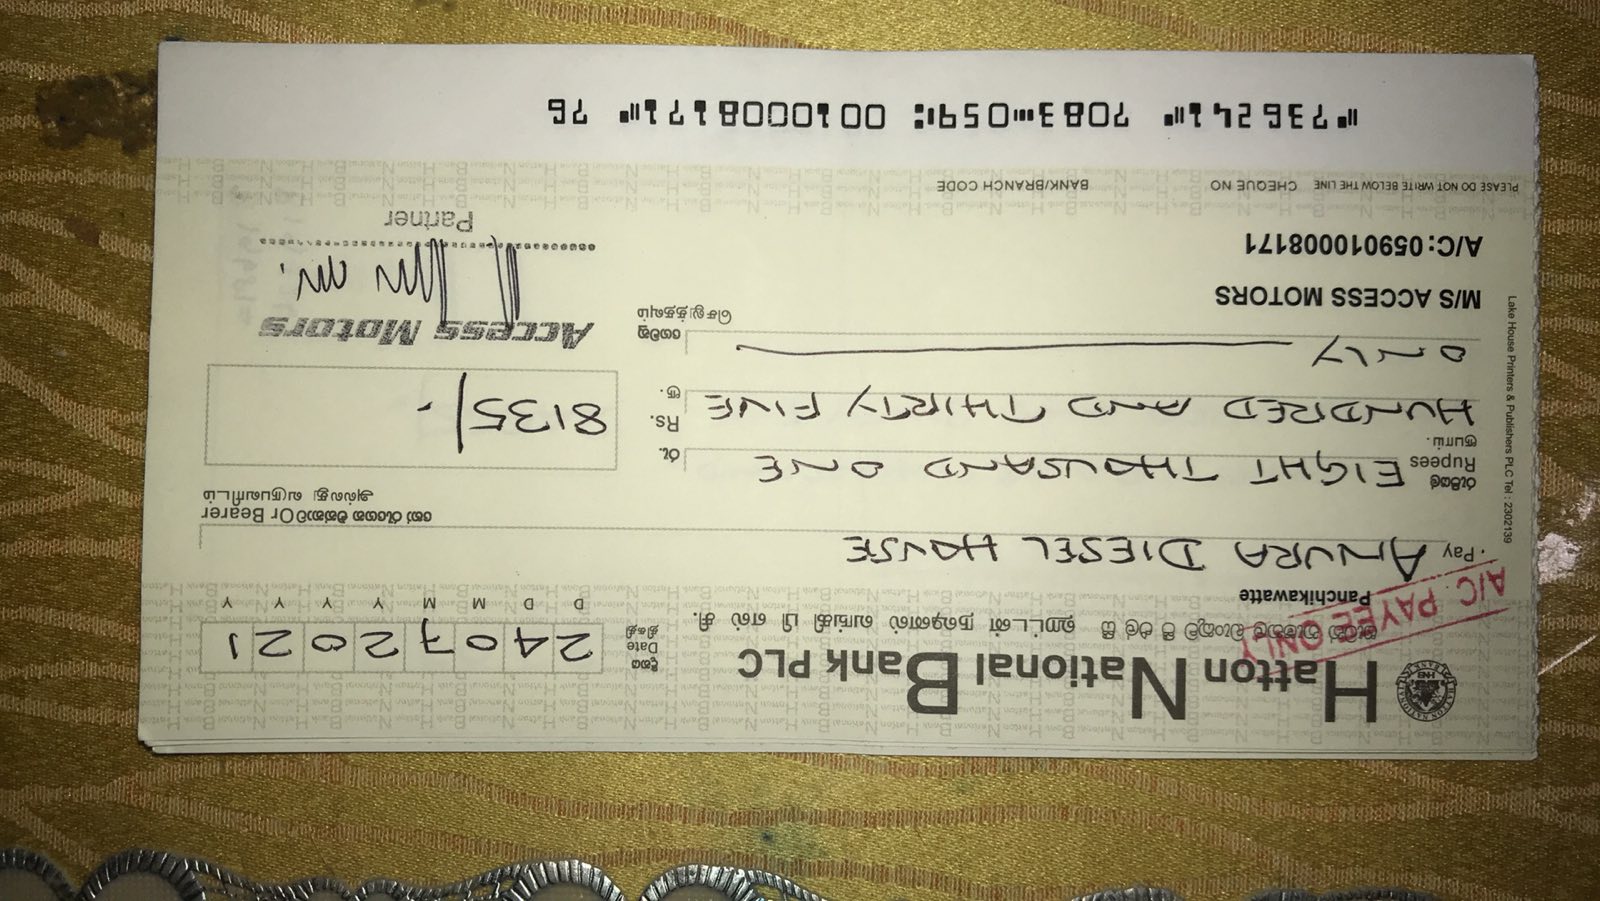 Hatton National Bank PLC
හැටන් නැෂනල් බැංකුව පී එල් සී ஹட்டன் நஷனல் வங்கி பி எல் சி.
Panchikawatte
A/C. PAYEE ONLY
දිනය
Date
திகதி
24072021
D D M M Y Y Y Y
Pay ANURA DIESEL HOUSE
හෝ රැගෙන එන්නාට Or Bearer
அல்லது வருபவரிடம்
රුපියල්
Rupees
ரூபாய்.
EIGHT THOUSAND ONE
HUNDRED AND THIRTY FIVE
ONLY
රු.
Rs.
ரூ.
8135/-
ගෙවනු
செலுத்தவும்
M/S ACCESS MOTORS
A/C: 059010008171
Access Motors
Partner
PLEASE DO NOT WRITE BELOW THE LINE CHEQUE NO BANK/BRANCH CODE
⑈736241⑈ 7083⑉059⑆ 0010008171⑈ 76
Lake House Printers & Publishers PLC Tel : 2302139